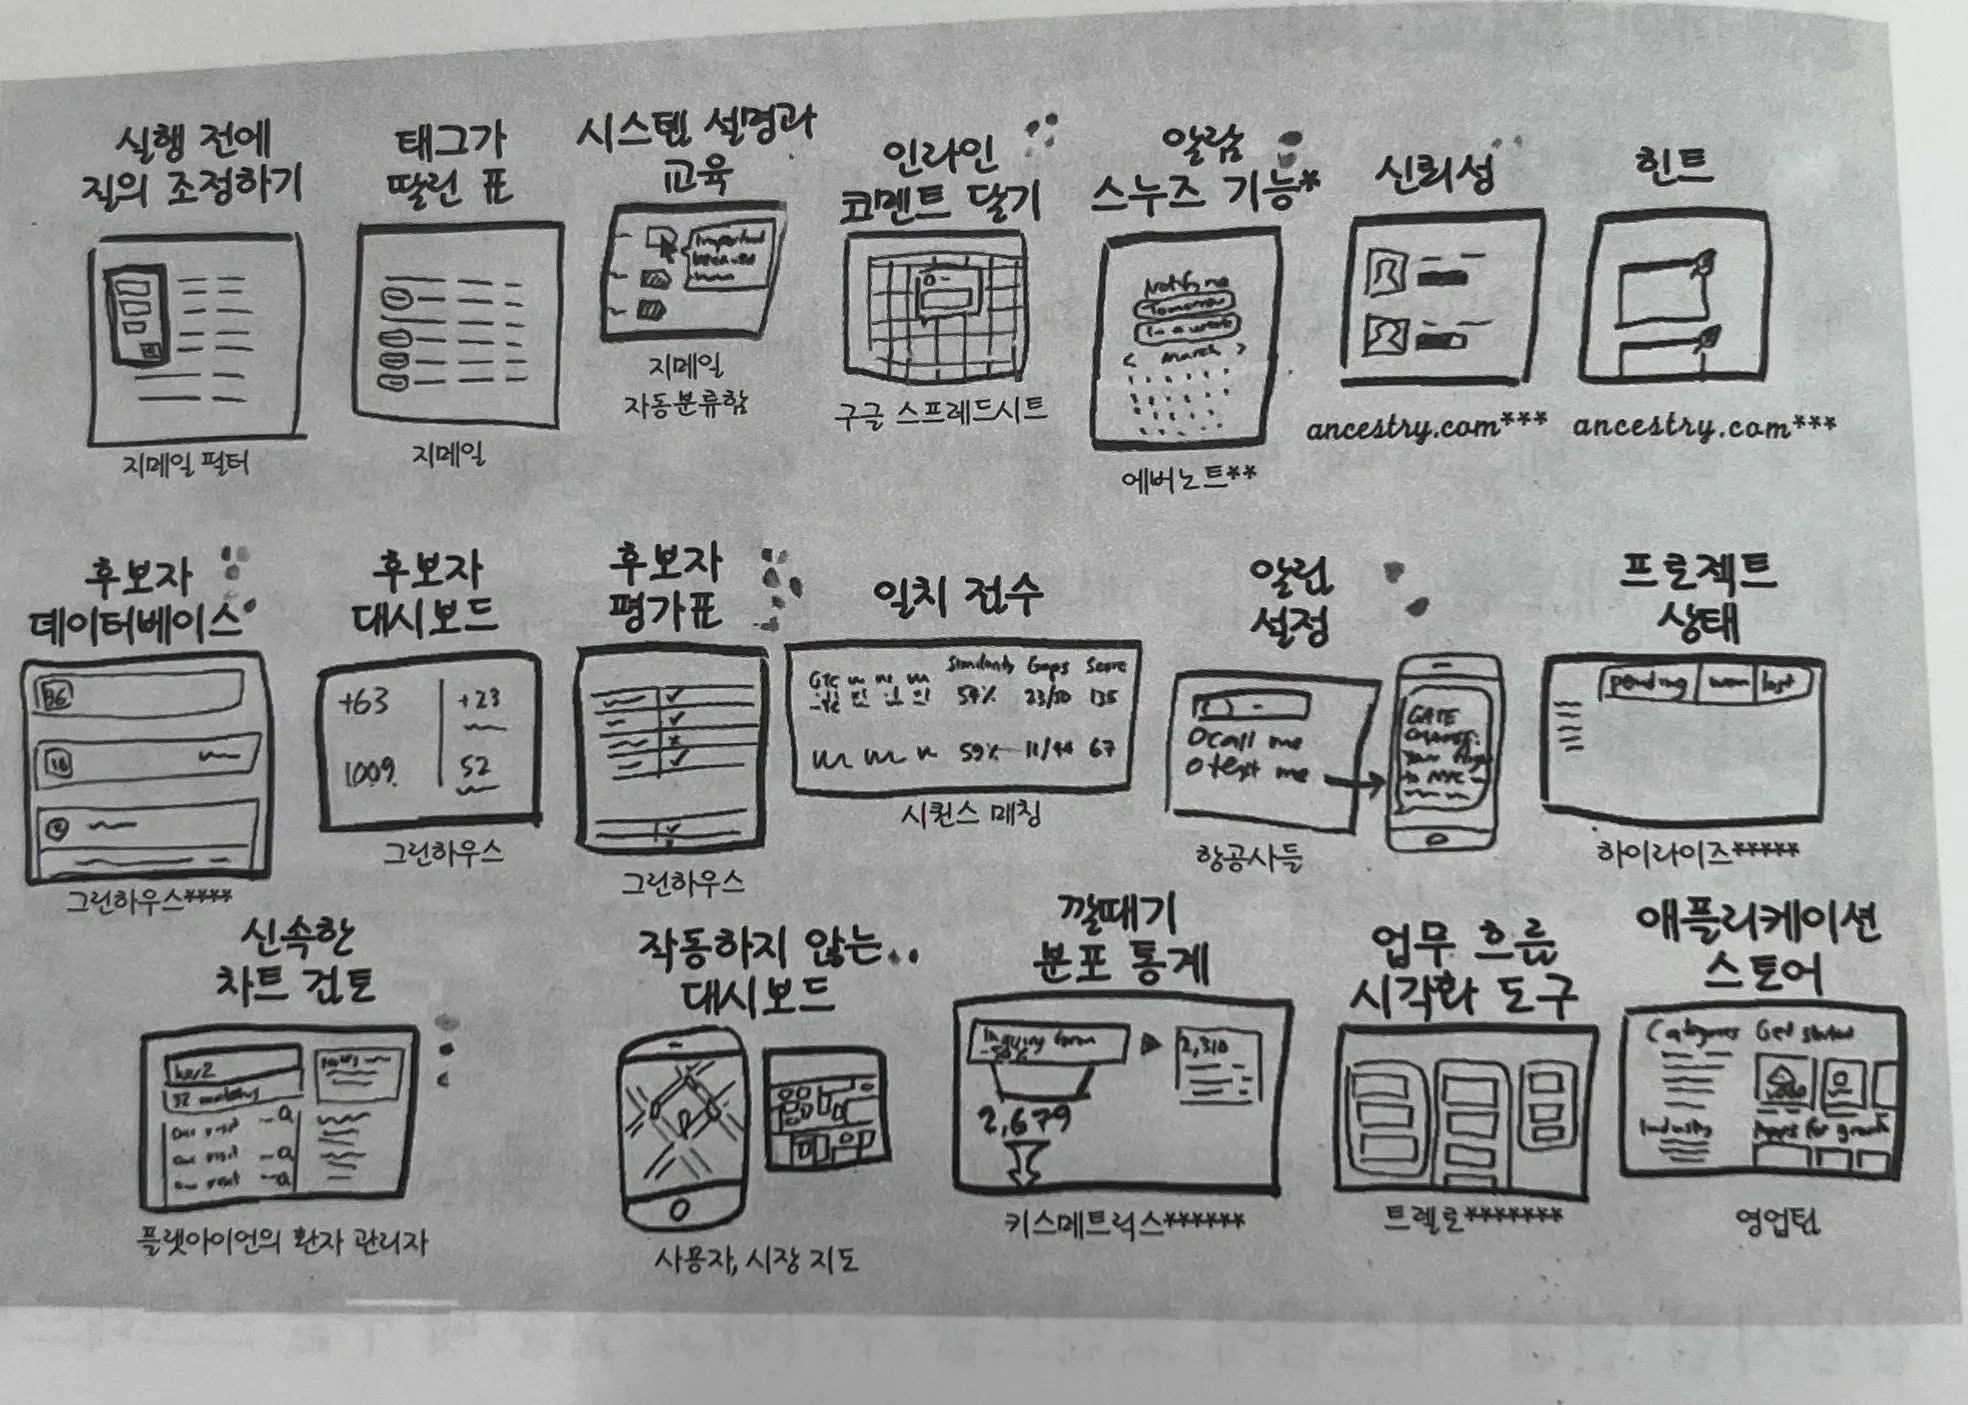 실행 전에
질의 조정하기
지메일 필터
태그가
딸린 표
지메일
시스템 설명과
교육
Important
because
지메일
자동분류함
인라인
코멘트 달기
구글 스프레드시트
알람
스누즈 기능*
Notify me
Tomorrow
In a week
< March >
에버노트**
신뢰성
ancestry.com***
힌트
ancestry.com***
후보자
데이터베이스
그린하우스****
후보자
대시보드
+63
+23
100%
52
그린하우스
후보자
평가표
그린하우스
일치 점수
Similarity Gaps Score
54% 23/50 135
59% 11/44 67
시퀀스 매칭
알림
설정
call me
text me
GATE
CHANGE:
to NYC
항공사들
프로젝트
상태
pending won lost
하이라이즈*****
신속한
차트 검토
her2
플랫아이언의 환자 관리자
작동하지 않는
대시보드
사용자, 시장 지도
깔때기
분포 통계
Inquiry form
-50%
2,310
2,679
키스메트릭스******
업무 흐름
시각화 도구
트렐로*******
애플리케이션
스토어
Categories Get started
Industry
Apps for growth
영업팀